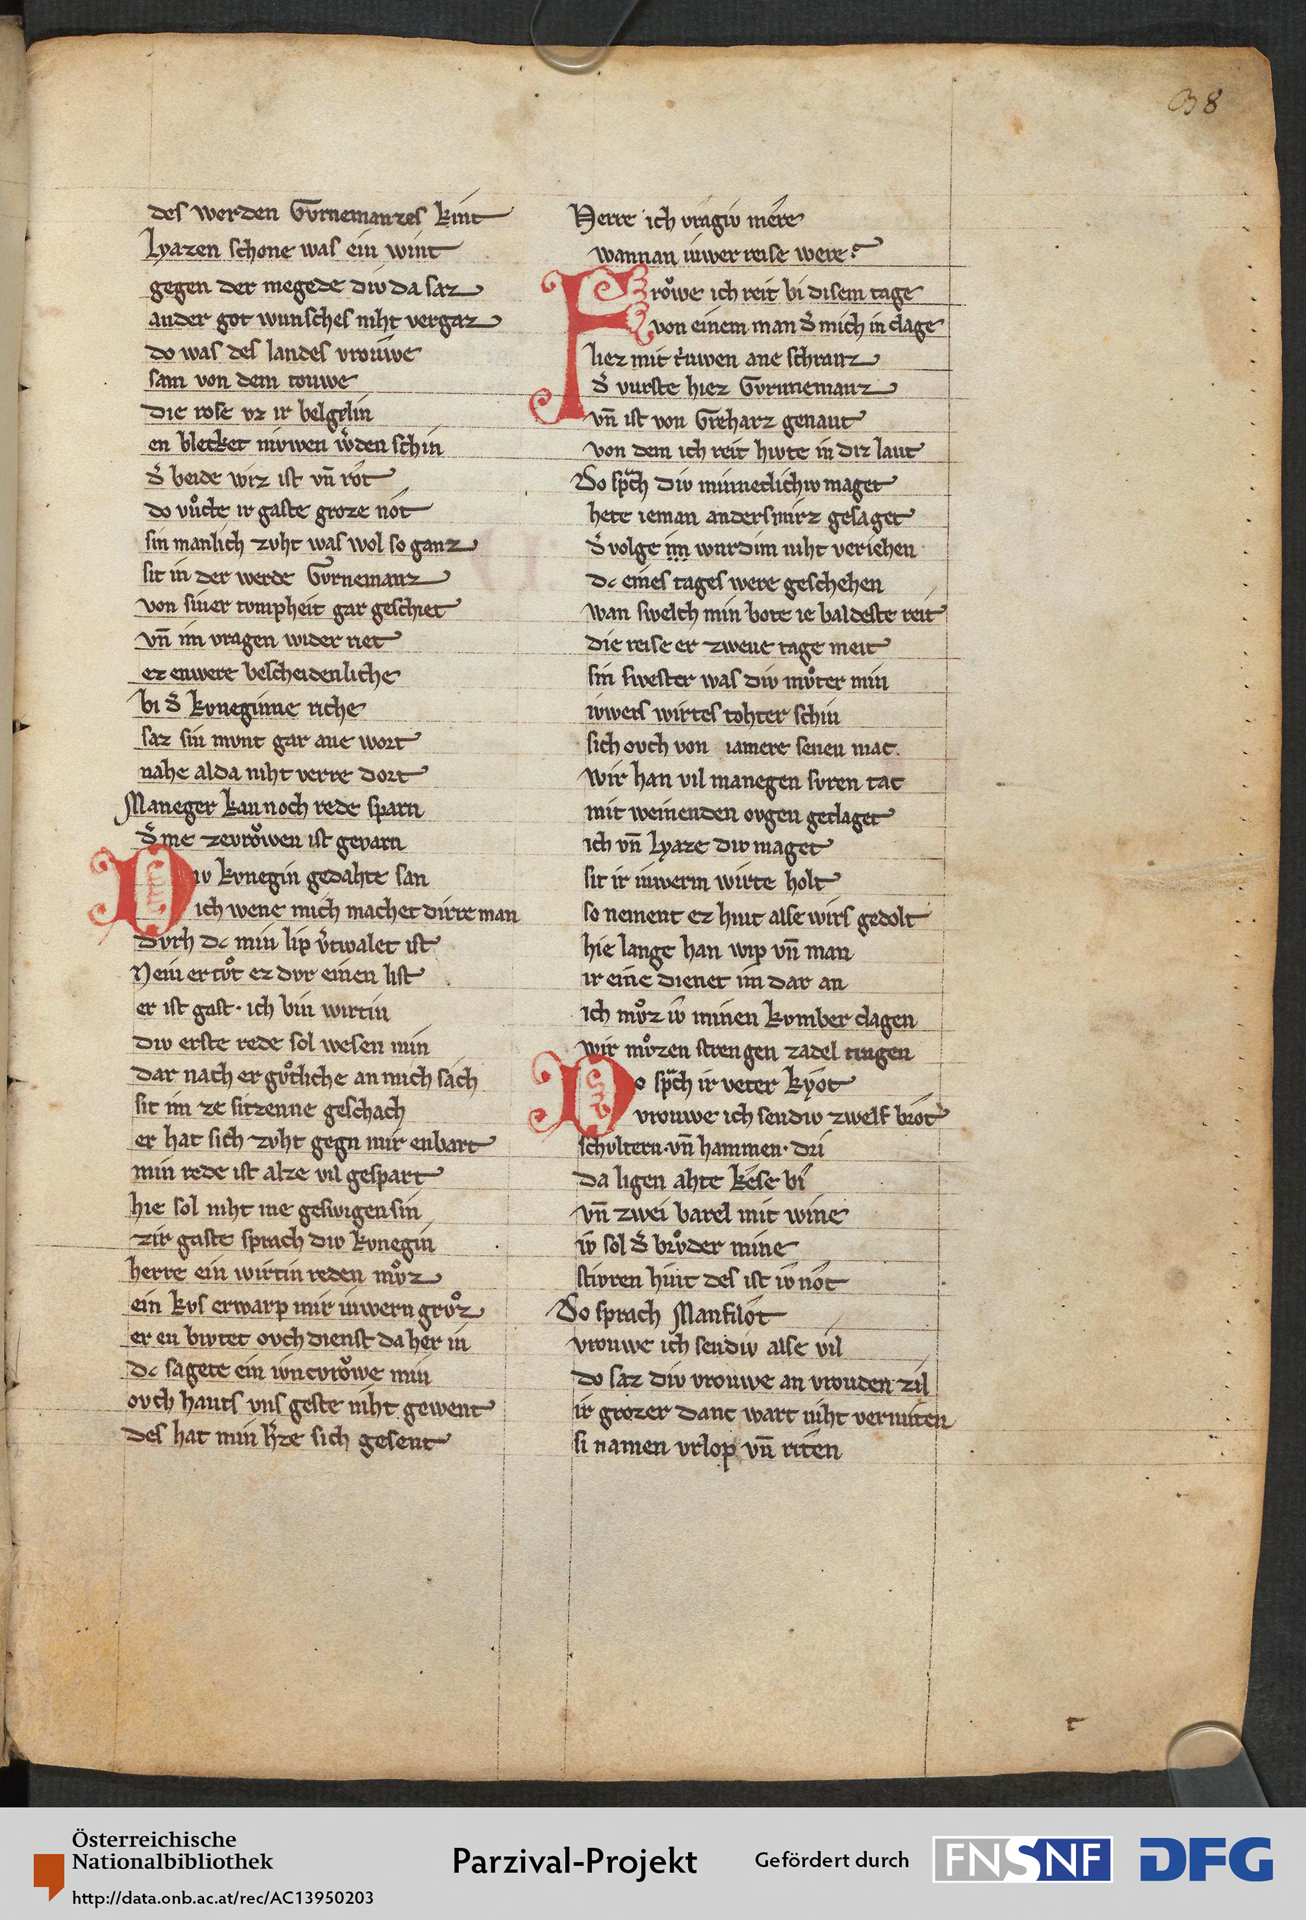 38
des werden Gvrnemanzes kint
Lyazen schone was ein wint
gegen der megede div da saz
ander got wunsches niht vergaz
do was des landes vrouwe
sam von dem touwe
die rose vz ir belgelin
en blecket nivwen w̾den schin
d̾ beide wiz ist vn̄ rot
do vuͦcte ir gaste groze not
sin manlich zvht was wol so ganz
sit in der werde Gvrnemanz
von siner tvmpheit gar geschiet
vn̄ im vragen wider riet
ez enwere bescheidenliche
bi d̾ kvneginne riche
saz sin mvnt gar ane wort
nahe alda niht verre dort
Maneger kan noch rede sparn
d̾ me zevroͮwen ist gevarn
Div kvnegin gedahte san
ich wene mich machet dirre man
dvrh dc min lip v̾twalet ist
Nein er tvͦt ez dvr einen list
er ist gast · ich bin wirtin
div erste rede sol wesen min
dar nach er gvͦtliche an mich sach
sit im ze sitzenne geschach
er hat sich zvht gegn mir enbart
min rede ist alze vil gespart
hie sol niht me geswigen sin
zir gaste sprach div kvnegin
herre ein wirtin reden mvͦz
ein kvs erwarp mir iuwern grvͦz
er en bivtet ovch dienst da her in
dc sagete ein ivncvroͮwe min
ovch hants vns geste niht gewent
des hat min h̾ze sich gesent
Herre ich vragiv mere
wannan iuwer reise were?
Froͮwe ich reit bi disem tage
von einem man d̾ mich in clage
liez mit triuwen ane schranz
d̾ vurste hiez Gvrnnemanz
vn̄ ist von Greharz genant
von dem ich reit hivte in diz lant
So sp̾ch div minneclichiv maget
hete ieman anders mirz gesaget
d̾ volge im wurdim niht veriehen
dc eines tages were geschehen
wan swelch min bote ie baldeste reit
die reise er zwene tage meit
sin swester was div mvͦter min
ivwers wirtes tohter schin
sich ovch von iamere senen mac
wir han vil manegen svren tac
mit weinenden ovgen geclaget
ich vn̄ Lyaze div maget
sit ir iuwerm wirte holt
so nement ez hint alse wirs gedolt
hie lange han wip vn̄ man
ir eine dienet im dar an
ich mvͦz iv minen kvmber clagen
wir mvͦzen strengen zadel tragen
Do sp̾ch ir veter kyot
vrouwe ich sendiv zwelf brot
schvltern · vn̄ hammen · dri
da ligen ahte kese bi
vn̄ zwei barel mit wine
iv sol d̾ brvͦder mine
stivren hint des ist iv not
So sprach Manfilot
vrouwe ich sendiv alse vil
do saz div vrouwe an vrouden zil
ir grozer danc wart niht vermiten
si namen vrlop vn̄ riten
Österreichische
Nationalbibliothek
http://data.onb.ac.at/rec/AC13950203
Parzival-Projekt
Gefördert durch
FNSNF
DFG